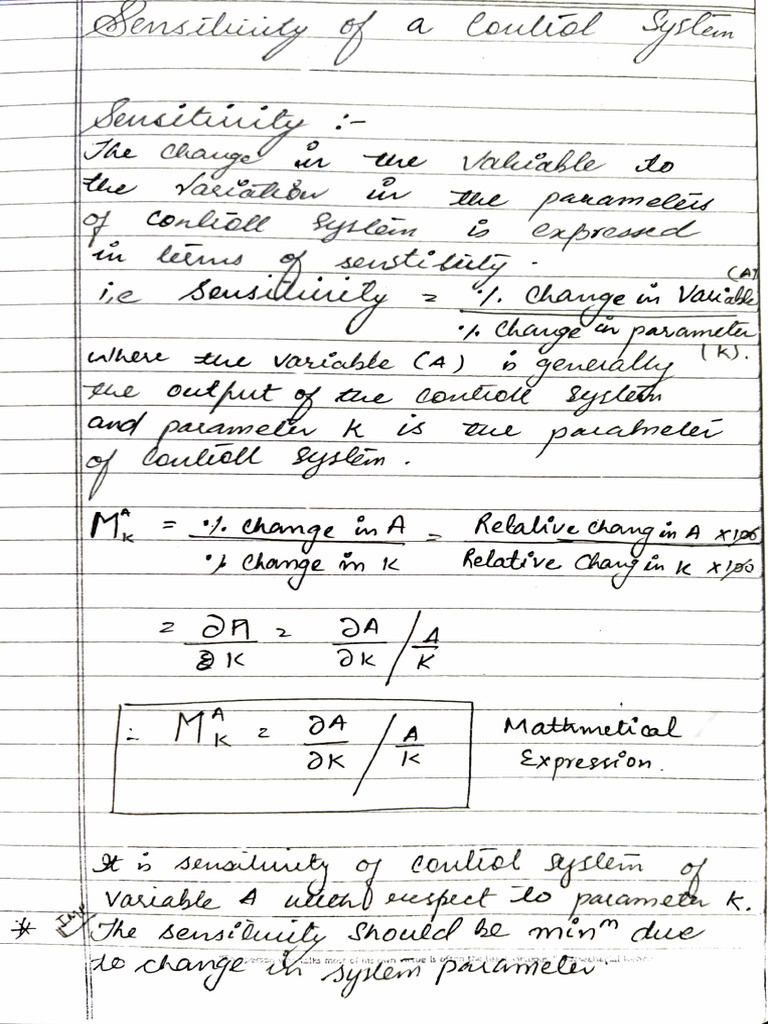 Sensitivity of a Control System
Sensitivity :-
The change in the variable to
the variation in the parameters
of controll system is expressed
in terms of senstibity.
(A)
i,e sensitivity = % change in Variable
% change in parameter
(K).
where the variable (A) is generally
the output of the controll system
and parameter K is the parameter
of controll system.
M^A_K = % change in A / % change in K = Relative chang in A ×100 / Relative Chang in K ×100
= ∂A / ∂K = ∂A/∂K / A/K
∴ M^A_K = ∂A/∂K / A/K Mathmetical
Expression.
It is sensitivity of control system of
variable A respect to parameter K.
* Imp The sensitivity should be min^m due
to change in system parameter